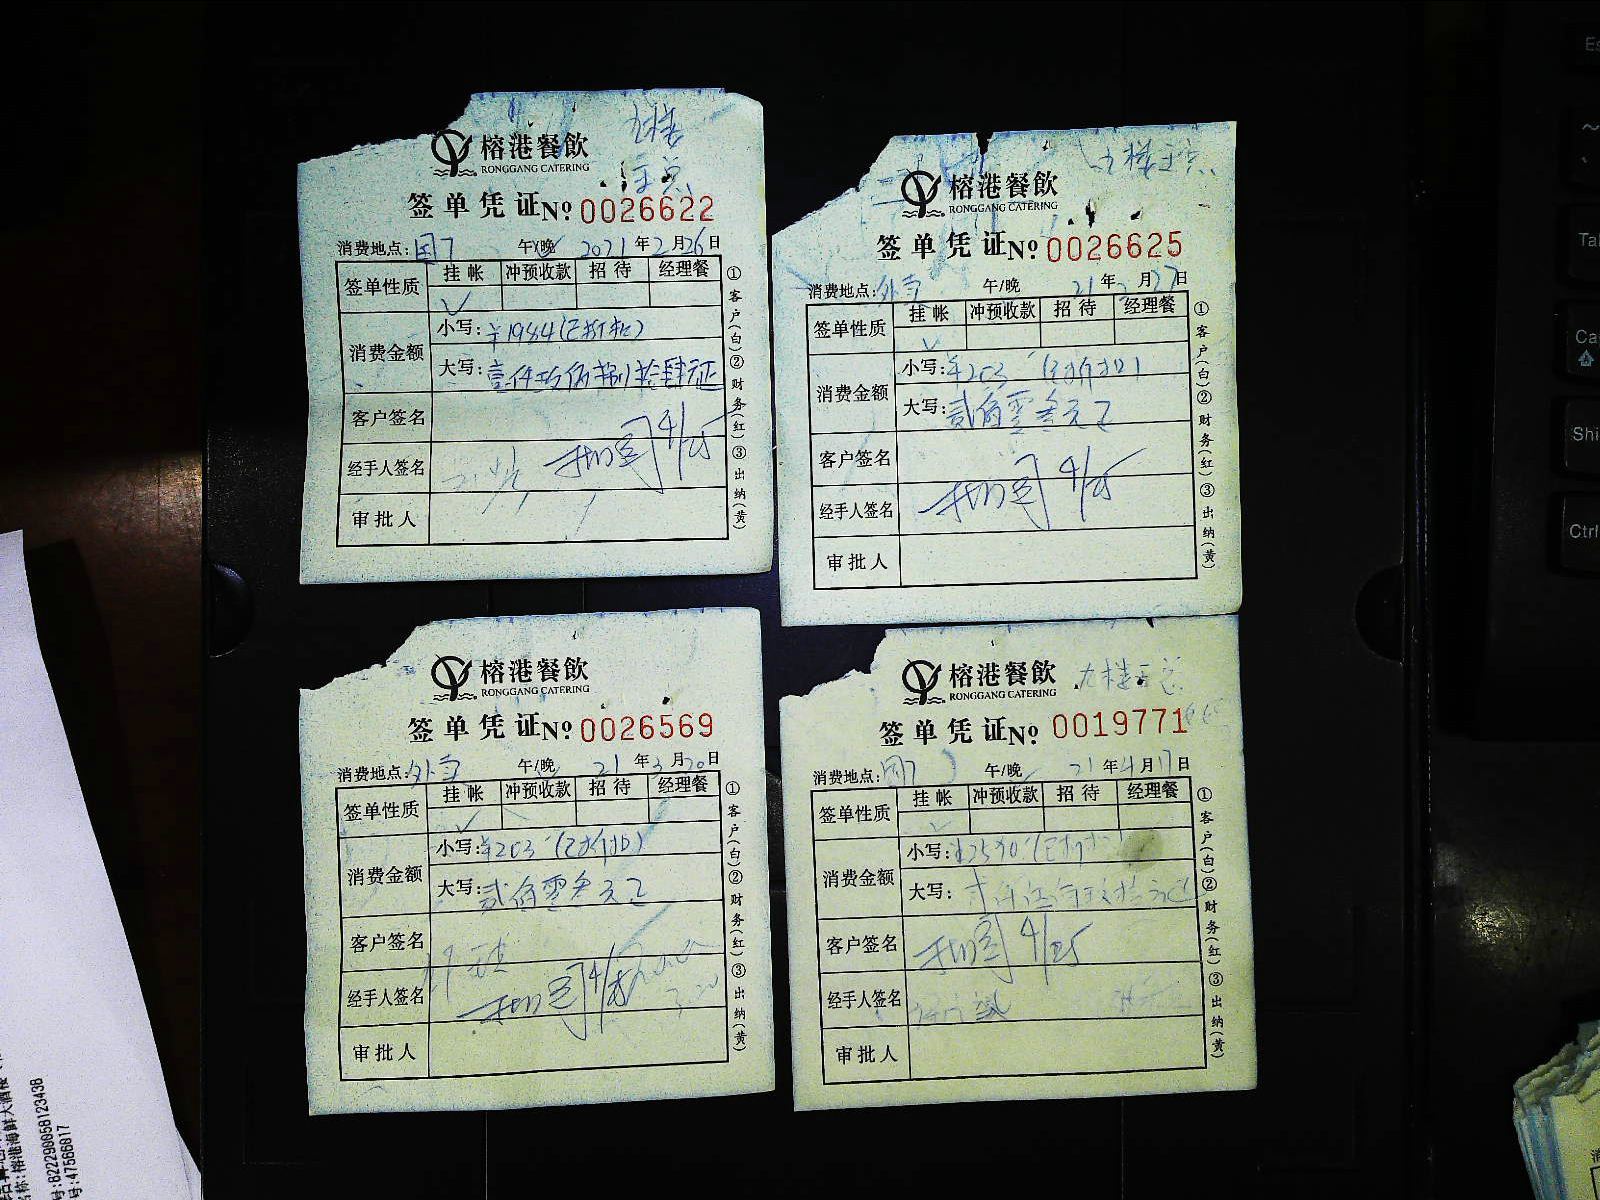 榕港餐飲
RONGGANG CATERING
签单凭证 № 0026622
消费地点: 国7 午/晚 2021年2月26日
签单性质 挂帐 冲预收款 招待 经理餐
消费金额 小写: ¥1984(已折扣)
大写: 壹仟玖佰捌拾肆元正
客户签名
经手人签名 4/25
审批人
①客户(白)②财务(红)③出纳(黄)
榕港餐飲
RONGGANG CATERING
签单凭证 № 0026625
消费地点: 外卖 午/晚 21年2月27日
签单性质 挂帐 冲预收款 招待 经理餐
消费金额 小写: ¥203(已折扣)
大写: 贰佰零叁元正
客户签名
经手人签名 4/25
审批人
①客户(白)②财务(红)③出纳(黄)
榕港餐飲
RONGGANG CATERING
签单凭证 № 0026569
消费地点: 外卖 午/晚 21年3月20日
签单性质 挂帐 冲预收款 招待 经理餐
消费金额 小写: ¥203(已折扣)
大写: 贰佰零叁元正
客户签名
经手人签名 4/25
审批人
①客户(白)②财务(红)③出纳(黄)
榕港餐飲
RONGGANG CATERING
签单凭证 № 0019771
消费地点: 国7 午/晚 21年4月17日
签单性质 挂帐 冲预收款 招待 经理餐
消费金额 小写: ¥2590(已折扣)
大写:
客户签名 4/25
经手人签名
审批人
①客户(白)②财务(红)③出纳(黄)
榕港海鲜大酒楼
:822290058123438
号:47566817
Tab
Ctrl